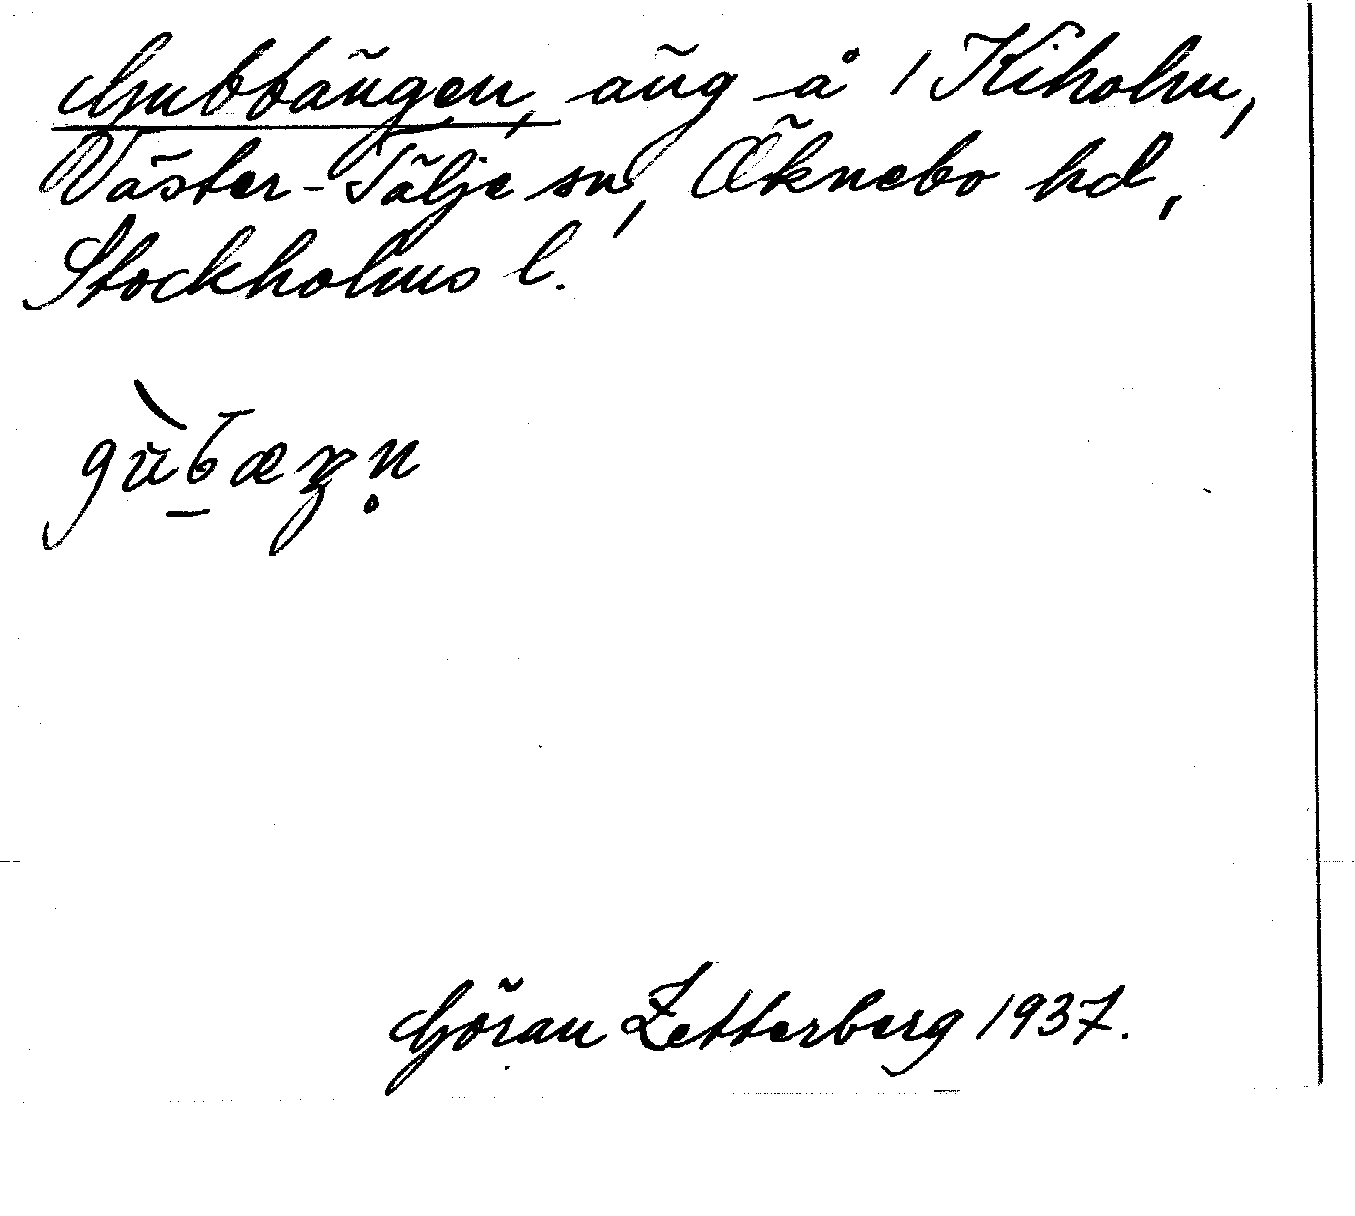 Gubbängen, äng å 1 Kiholm,
Väster-Tälje sn, Öknebo hd,
Stockholms l.
Göran Zetterberg 1937.